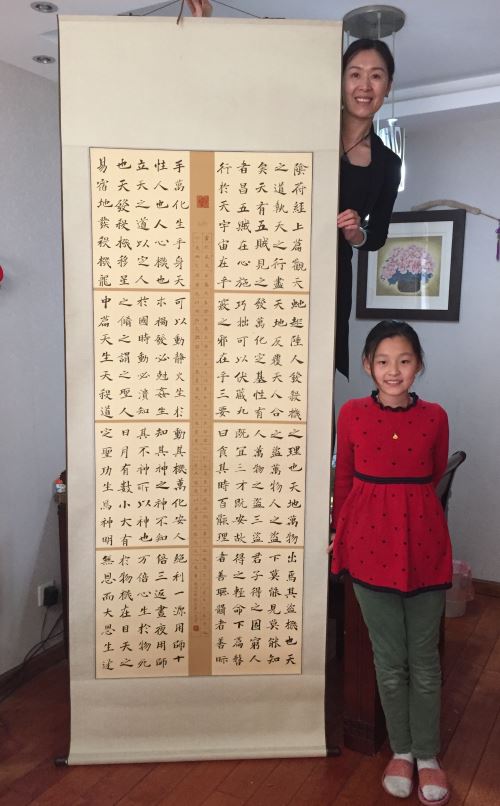 陰符經上篇觀天
之道執天之行盡
矣天有五賊見之
者昌五賊在心施
行於天宇宙在乎
手萬化生乎身天
性人也人心機也
立天之道以定人
也天發殺機移星
易宿地發殺機龍
蛇起陸人發殺機
天地反覆天人合
發萬化定基性有
巧拙可以伏藏九
竅之邪在乎三要
可以動靜火生於
木禍發必尅姦生
於國時動必潰知
之脩之謂之聖人
中篇天生天殺道
之理也天地萬物
之盜萬物人之盜
人萬物之盜三盜
既宜三才既安故
曰食其時百骸理
動其機萬化安人
知其神之神不知
其不神所以神也
日月有數小大有
定聖功生焉神明
出焉其盜機也天
下莫能見莫能知
君子得之固窮人
得之輕命下篇瞽
者善聽聾者善眎
絕利一源用師十
倍三返晝夜用師
万倍心生於物死
於物機在目天之
無恩而大恩生迅